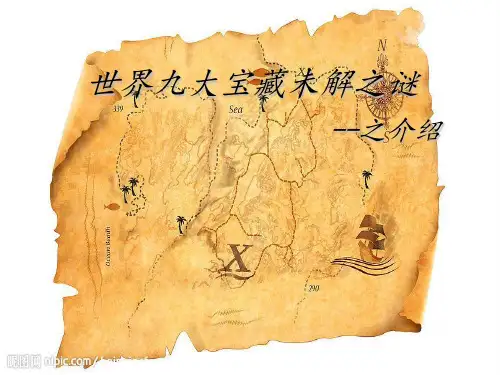 世界九大宝藏未解之谜
--之介绍
N
339
Sea
Ocean Booth
X
290
昵图网 nipic.com/